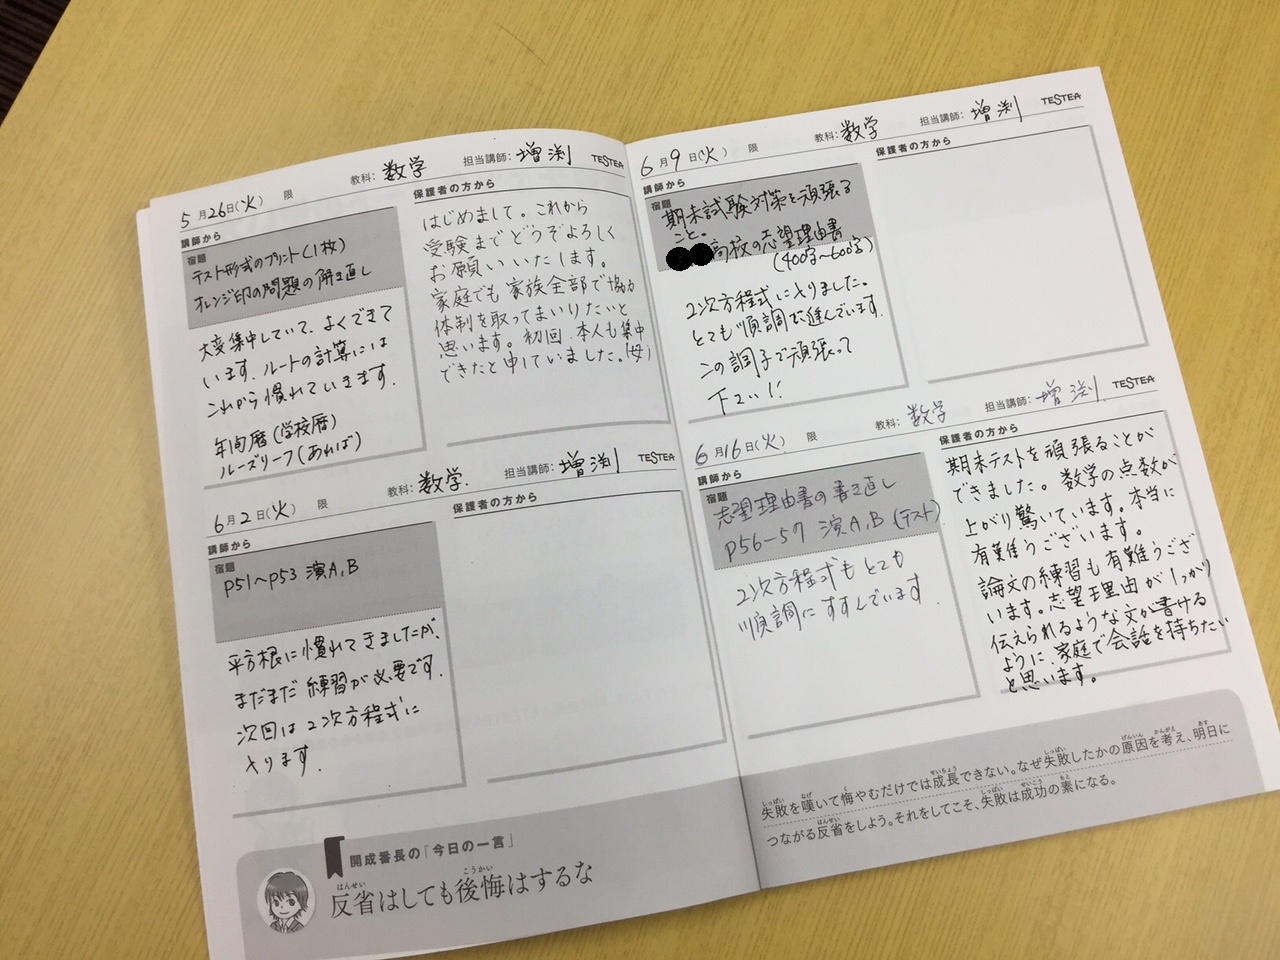 5月26日(火) 限 教科：数学 担当講師：増渕 TESTEA
講師から
宿題
テスト形式のプリント(1枚)
オレンジ印の問題の解き直し
大変集中していて、よくできて
います。ルートの計算には
これから慣れていきます。
年間暦(学校暦)
ルーズリーフ(あれば)
保護者の方から
はじめまして。これから
受験までどうぞよろしく
お願いいたします。
家庭でも家族全部で協力
体制を取ってまいりたいと
思います。初回、本人も集中
できたと申していました。(母)
6月2日(火) 限 教科：数学. 担当講師：増渕 TESTEA
講師から
宿題
P51～P53 演A,B
平方根に慣れてきましたが、
まだまだ練習が必要です。
次回は2次方程式に
入ります。
保護者の方から
開成番長の「今日の一言」
反省はしても後悔はするな
6月9日(火) 限 教科：数学 担当講師：増渕 TESTEA
講師から
宿題
期末試験対策を頑張る
こと。
高校の志望理由書
(400字～600字)
2次方程式に入りました。
とても順調に進んでいます。
この調子で頑張って
下さい！
保護者の方から
6月16日(火) 限 教科：数学 担当講師：増渕. TESTEA
講師から
宿題
志望理由書の書き直し
P56-57 演A,B (テスト)
2次方程式もとても
順調にすすんでいます.
保護者の方から
期末テストを頑張ることが
できました。数学の点数が
上がり驚いています。本当に
有難うございます。
論文の練習も有難うござ
います。志望理由がしっかり
伝えられるような文が書ける
ように、家庭で会話を持ちたい
と思います。
失敗を嘆いて悔やむだけでは成長できない。なぜ失敗したかの原因を考え、明日に
つながる反省をしよう。それをしてこそ、失敗は成功の素になる。